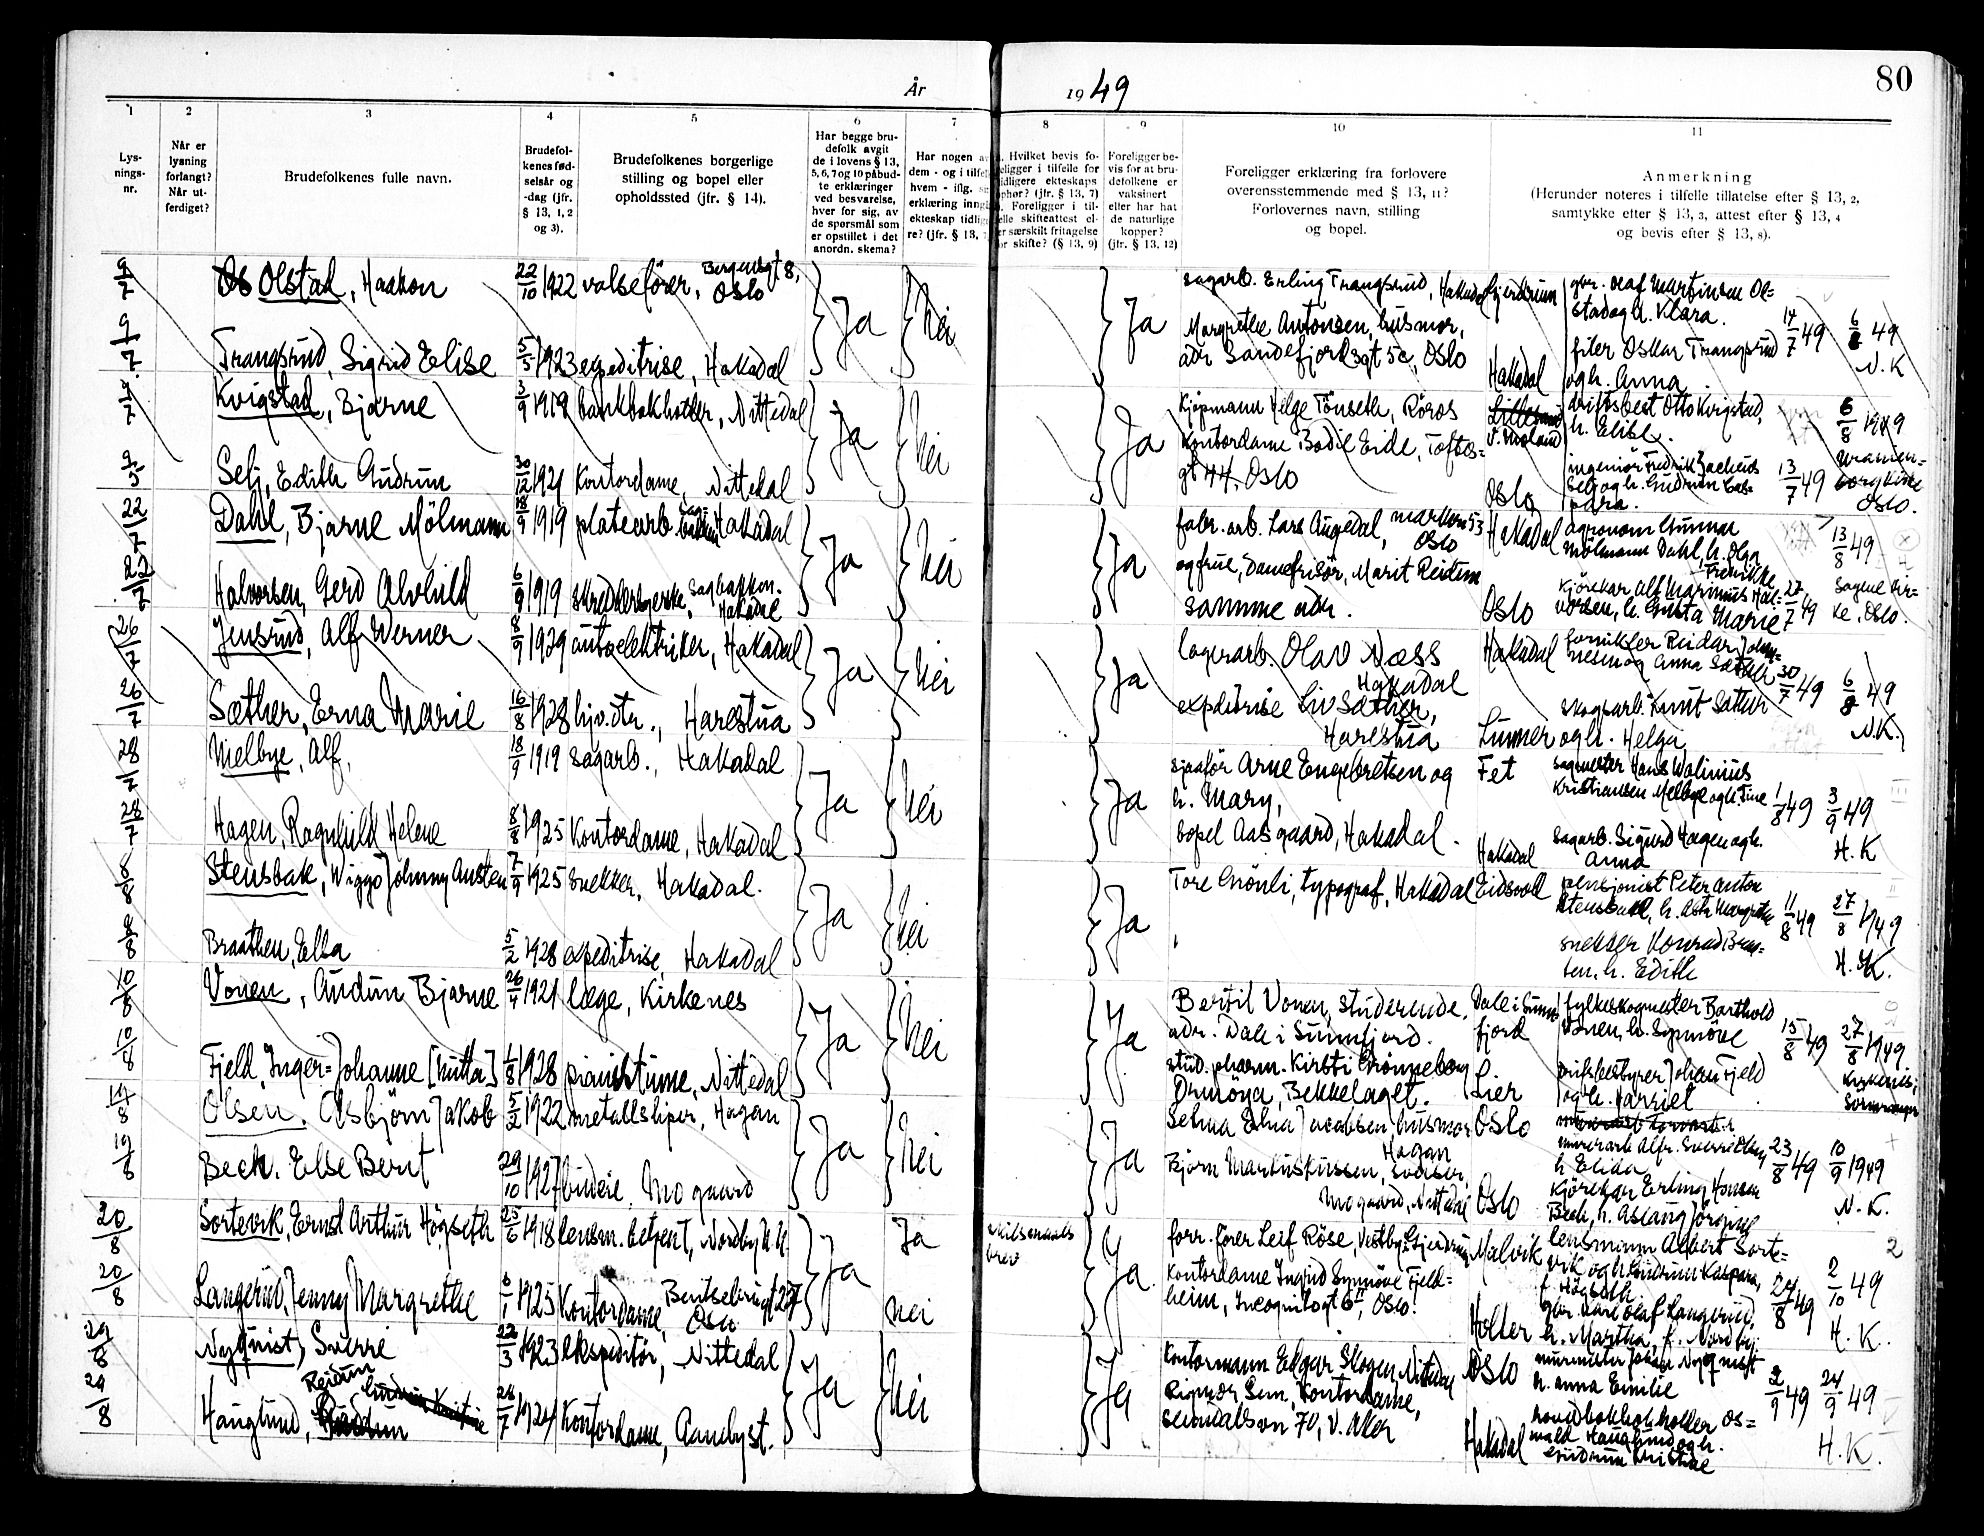 År 1949
80
1 2 3 4 5 6 7 8 9 10 11
Lys-
nings-
nr.
Når er
lysning
forlangt?
Når ut-
ferdiget?
Brudefolkenes fulle navn.
Brudefol-
kenes fød-
selsår og
-dag (jfr.
§ 13, 1, 2
og 3).
Brudefolkenes borgerlige
stilling og bopel eller
opholdssted (jfr. § 14).
Har begge bru-
defolk avgit
de i lovens § 13,
5, 6, 7 og 10 påbud-
te erklæringer
ved besvarelse,
hver for sig, av
de spørsmål som
er opstillet i det
anordn. skema?
Har nogen
dem - og i tilf
hvem - iflg.
erklæring inng
ekteskap tidlig
re? (jfr. § 13,
Hvilket bevis fo-
religger i tilfelle for
tidligere ekteskaps
ophør? (jfr. § 13, 7)
Foreligger i til-
felle skifteattest el-
ler særskilt fritagelse
for skifte? (§ 13, 9)
Foreligger be-
vis for at bru-
defolkene er
vaksinert
eller har hat
de naturlige
kopper?
(jfr. § 13, 12)
Foreligger erklæring fra forlovere
overensstemmende med § 13, 11?
Forlovernes navn, stilling
og bopel.
Anmerkning
(Herunder noteres i tilfelle tillatelse efter § 13, 2,
samtykke efter § 13, 3, attest efter § 13, 4
og bevis efter § 13, 8).
9/7 Olstad, Haakon 22/10 1922 valsefører, Bergensgt 8, Oslo Ja Nei
Ja sagarb. Erling Trangsrud, Hakadal Gjerdrum gbr. Olaf Martinsen Ol=
stad og h. Klara.
Margrethe Antonsen, husmor,
adr Sandefjordsgt 5c, Oslo
14/7 49 6/8 49
N.K
9/7 Trangsrud, Sigrid Elise 5/5 1923 expeditrise, Hakadal
Hakadal filer Oskar Trangsrud
og h. Anna
9/7 Kvigstad, Bjarne 3/9 1919 bankbokholder, Nittedal Ja Nei
Ja Kjøpmann Helge Tönseth, Røros
V. Moland driftsbest Otto Kvigstad,
h. Elise.
Kontordame Bodil Eide, Toftes=
gt 44, Oslo
6/8 1949
9/7 Selj, Edith Gudrun 30/12 1921 Kontordame, Nittedal
Oslo ingeniør Fredrik
Selj og h. Gudrun
13/7 49
Oslo.
22/7 Dahl, Bjarne Mölmann 18/9 1919 platearb. Hakadal Ja Nei
Ja fabr. arb. Lars Augedal, Oslo
Hakadal agronom Gunnar
Mölmann Dahl, h. Olga
Fredrikke
og frue, Damefrisør, Marit Reidun
samme adr.
13/8 49
22/7 Halvorsen, Gerd Alvhild 6/9 1919 Hakadal
Oslo Kjørekar Alf Marinius Hal=
vorsen, h. Gusta Marie
27/7 49
Sagene kir=
ke, Oslo.
26/7 Jensrud, Alf Werner 8/9 1929 autoelektriker, Hakadal Ja Nei
Ja lagerarb. Olav Næss
Hakadal
Hakadal Reidar Johan=
nesen og Anna Sæther
26/7 Sæther, Erna Marie 16/8 1928 hjv. dtr., Harestua
expeditrise Liv Sæther,
Harestua
Lunner skogsarb. Knut Sæther
og h. Helga
30/7 49 6/8 49
N.K.
28/7 Melbye, Alf, 18/9 1919 sagarb., Hakadal Ja Nei
Ja sjåfør Arne Engebretsen og
h. Mary,
bopel Aasgaard, Hakadal.
Fet sagmester Hans Walinius
Kristiansen Melbye og h. Tine
1/8 49 3/9 49
H.K
28/7 Hagen, Ragnhild Helene 8/8 1925 Kontordame, Hakadal
Hakadal sagarb. Sigurd Hagen og h.
Anna
8/8 Stensbak, Wiggo Johnny Austen 7/9 1925 snekker, Hakadal. Ja Nei
Ja Tore Grönli, typograf, Hakadal
Eidsvoll pensjonist Peter Anton
Stensbak, h. Asta Margrethe
11/8 49 27/8 1949
H.K.
8/8 Braathen, Ella 5/2 1928 expeditrise, Hakadal
snekker Konrad Braa=
ten, h. Edith
10/8 Vonen, Audun Bjarne 26/4 1921 læge, Kirkenes Ja Nei
Ja Bertil Vonen, studerende.
adr. Dale i Sunnfjord.
Dale i Sunn=
fjord fylkesskogmester Barthold
Vonen, h. Synnöve
15/8 49 27/8 1949
10/8 Fjeld, Inger=Johanne [Nutta] 1/8 1928 pianistinne, Nittedal
stud. pharm. Kirsti Grönneberg
Ormöya, Bekkelaget.
Lier driftsbestyrer Johan Fjeld
og h. Harriet
19/8 Olsen, Asbjörn Jakob 5/2 1922 metallsliper, Hagan Ja Nei
Ja Selma Elna Jacobsen, husmor
Hagan
Oslo
murerarb Alfr. Sverre Olsen
h. Elida
23/8 49 10/9 1949
N.K.
19/8 Beck, Else Berit 29/10 1927 budeie, Mo gaard
Björn Markus
Mo gaard, Nittedal
Oslo Kjörekar Erling Hansen
Beck, h. Aslaug Jörgine
20/8 Sortevik, Ernst Arthur Högseth 25/6 1918 lensm. betjent, Nordby Ja Ja
Skilsmisse
brev
Ja forr. fører Leif Röse,
Malvik lensmann Albert Sorte=
vik og h. Gudrun Kaspara,
f. Högseth.
Kontordame Ingrid Synnöve Fjeld=
heim, Incognitogt 6, Oslo.
24/8 49 2/10 49
H.K.
20/8 Langerud, Jenny Margrethe 6/1 1925 Kontordame, Bentsebrugt 27
Oslo nei
Holter gbr. Karl Olaf Langerud,
h. Martha, f. Nordby.
29/8 Nyqvist, Sverre 22/3 1923 ekspeditör, Nittedal Ja Nei
Ja Kontormann Edgar Skogen, Nittedal
Oslo murmester Johan Nyqvist
h. Anna Emilie
2/9 49 24/9 49
H.K.
29/8 Hauglund, Reidun 28/7 1924 Kontordame, Aaneby st.
Kontordame,
70, V. Aker
Hakadal hovedbokholder Os=
wald Hauglund og h.
Gudrun Kristine